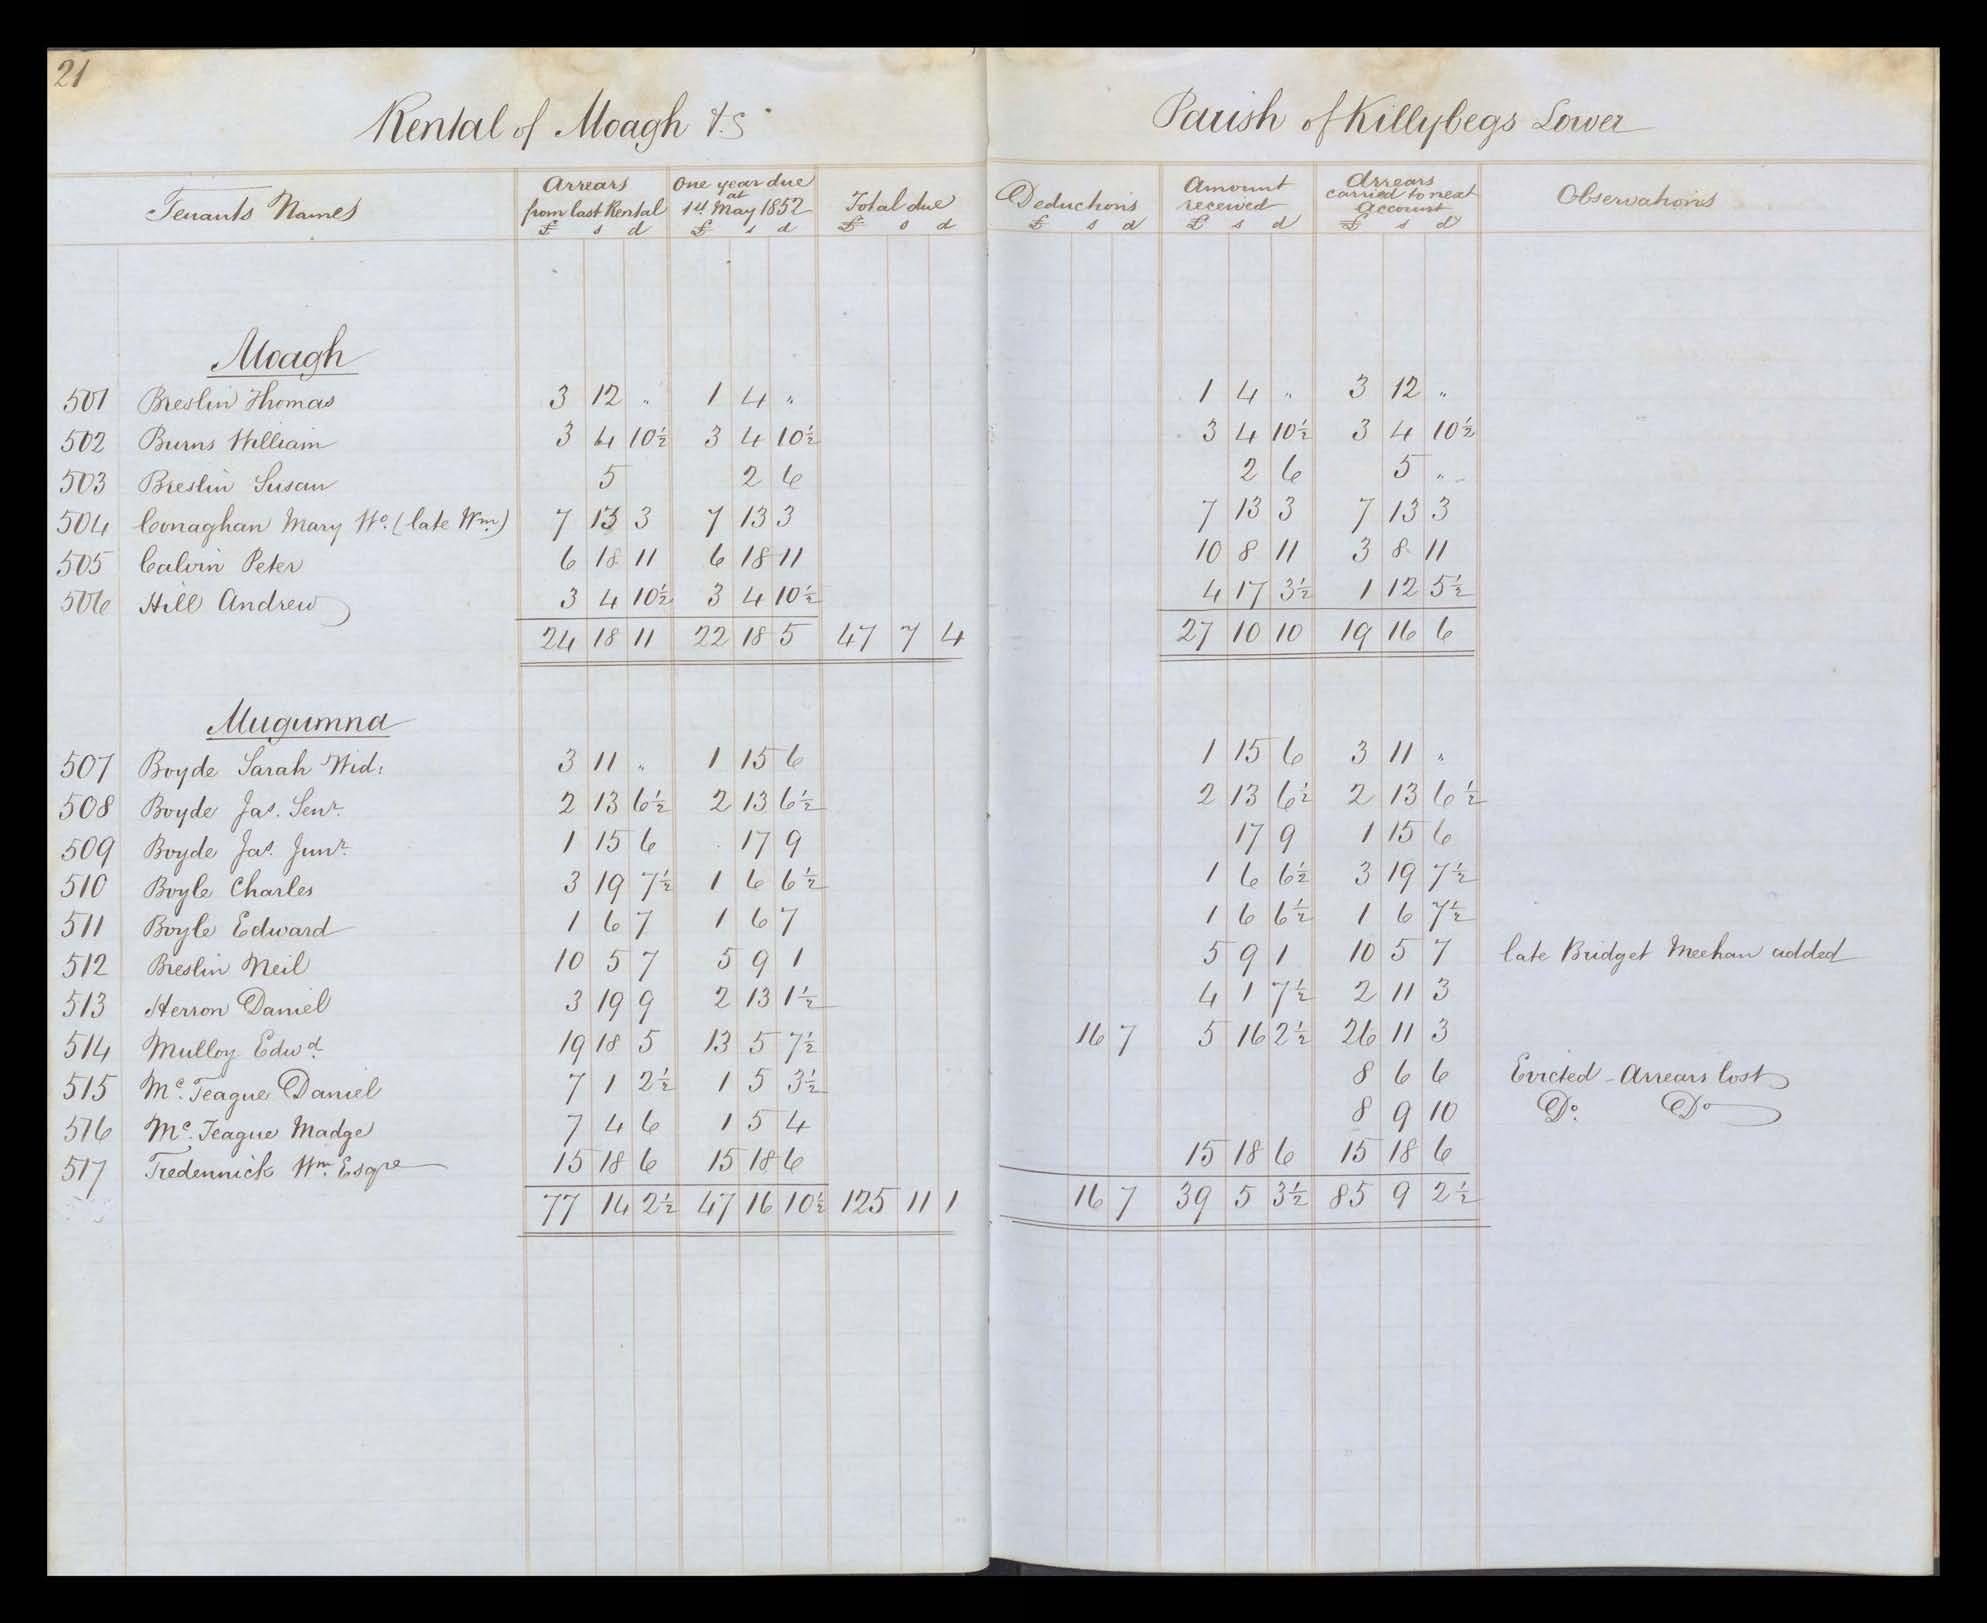 21
Rental of Moagh &.S Parish of Killybegs Lower
Tenants Names | Arrears from last Rental £ s d | One year due at 1st May 1852 £ s d | Total due £ s d | Deductions £ s d | Amount received £ s d | Arrears carried to next account £ s d | Observations
Moagh
501 Breslin Thomas | 3 12 " | 1 4 " | | | 1 4 " | 3 12 "
502 Burns William | 3 4 10½ | 3 4 10½ | | | 3 4 10½ | 3 4 10½
503 Breslin Susan | 5 | 2 6 | | | 2 6 | 5 "
504 Conaghan Mary Wo. (late Wm.) | 7 13 3 | 7 13 3 | | | 7 13 3 | 7 13 3
505 Calvin Peter | 6 18 11 | 6 18 11 | | | 10 8 11 | 3 8 11
506 Hill Andrew | 3 4 10½ | 3 4 10½ | | | 4 17 3½ | 1 12 5½
24 18 11 | 22 18 5 | 47 7 4 | | 27 10 10 | 19 16 6
Mugumna
507 Boyde Sarah Wid: | 3 11 " | 1 15 6 | | | 1 15 6 | 3 11 "
508 Boyde Jas. Senr. | 2 13 6½ | 2 13 6½ | | | 2 13 6½ | 2 13 6½
509 Boyde Jas. Junr. | 1 15 6 | 17 9 | | | 17 9 | 1 15 6
510 Boyle Charles | 3 19 7½ | 1 6 6½ | | | 1 6 6½ | 3 19 7½
511 Boyle Edward | 1 6 7 | 1 6 7 | | | 1 6 6½ | 1 6 7½
512 Breslin Neil | 10 5 7 | 5 9 1 | | | 5 9 1 | 10 5 7 | late Bridget Meehan added
513 Herron Daniel | 3 19 9 | 2 13 1½ | | | 4 1 7½ | 2 11 3
514 Mulloy Edwd. | 19 18 5 | 13 5 7½ | | 16 7 | 5 16 2½ | 26 11 3
515 Mc. Teague Daniel | 7 1 2½ | 1 5 3½ | | | | 8 6 6 | Evicted - Arrears lost
516 Mc. Teague Madge | 7 4 6 | 1 5 4 | | | | 8 9 10 | Do. Do
517 Tredennick Wm. Esqre | 15 18 6 | 15 18 6 | | | 15 18 6 | 15 18 6
77 14 2½ | 47 16 10½ | 125 11 1 | 16 7 | 39 5 3½ | 85 9 2½